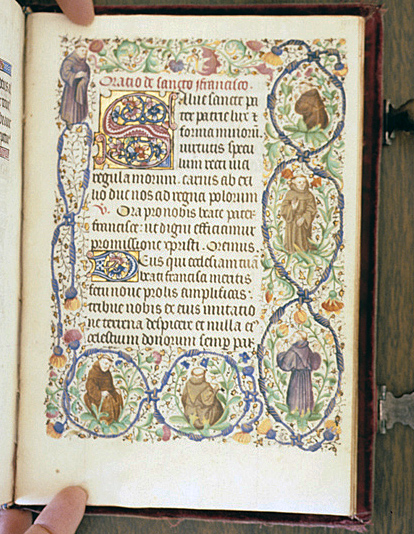 Oratio de sancto ffrancisco.
Salue sancte pa
ter patrie lux
forma minorum
uirtutis specu
lum recti uia
regula morum. carnis ab exi
lio duc nos ad regna polorum
V. Ora pro nobis beate pater
francisce. ut digni efficiamur
promissione xpristi. Oremus.
Deus qui ecclesiam tuā
beati francisci meritis
fetu noue prolis amplificas.
tribue nobis ex eius imitatio
ne terrena despicere et
celestium donorum semp par